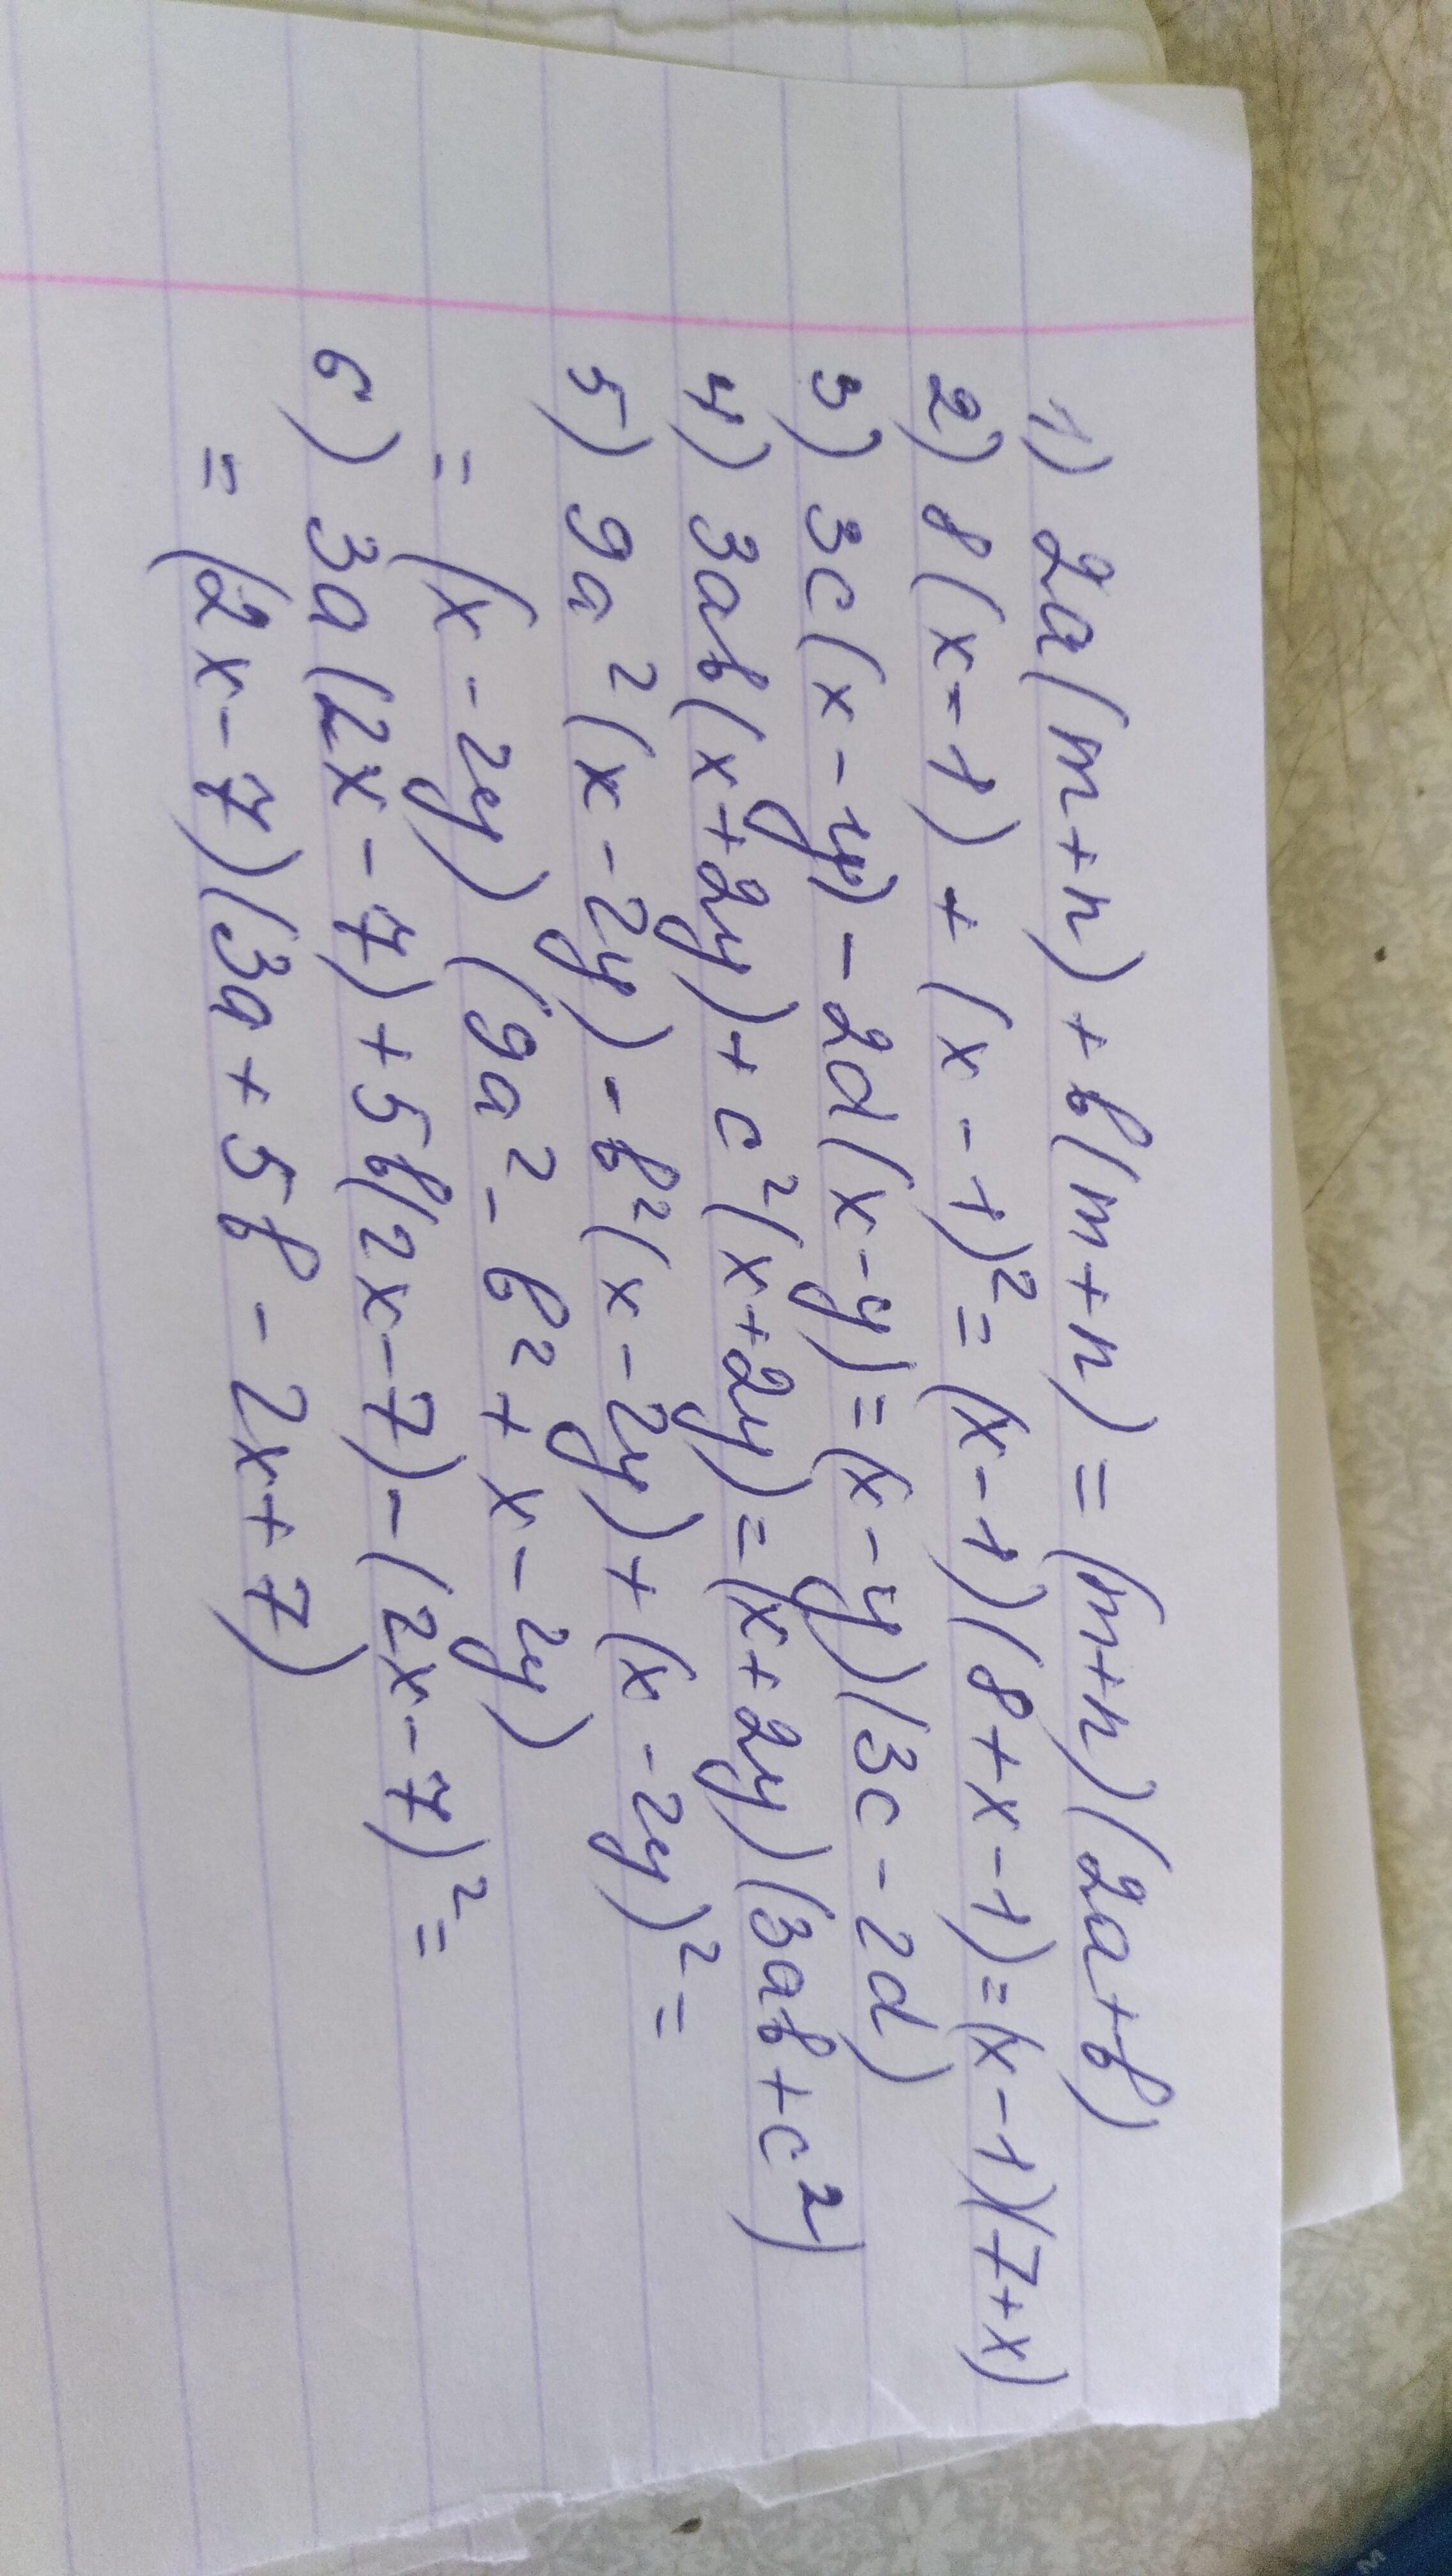 1) 2a(m+n)+b(m+n)=(m+n)(2a+b)
2) 8(x-1)+(x-1)²=(x-1)(8+x-1)=(x-1)(7+x)
3) 3c(x-y)-2d(x-y)=(x-y)(3c-2d)
4) 3ab(x+2y)+c²(x+2y)=(x+2y)(3ab+c²)
5) 9a²(x-2y)-b²(x-2y)+(x-2y)²=
=(x-2y)(9a²-b²+x-2y)
6) 3a(2x-7)+5b(2x-7)-(2x-7)²=
=(2x-7)(3a+5b-2x+7)